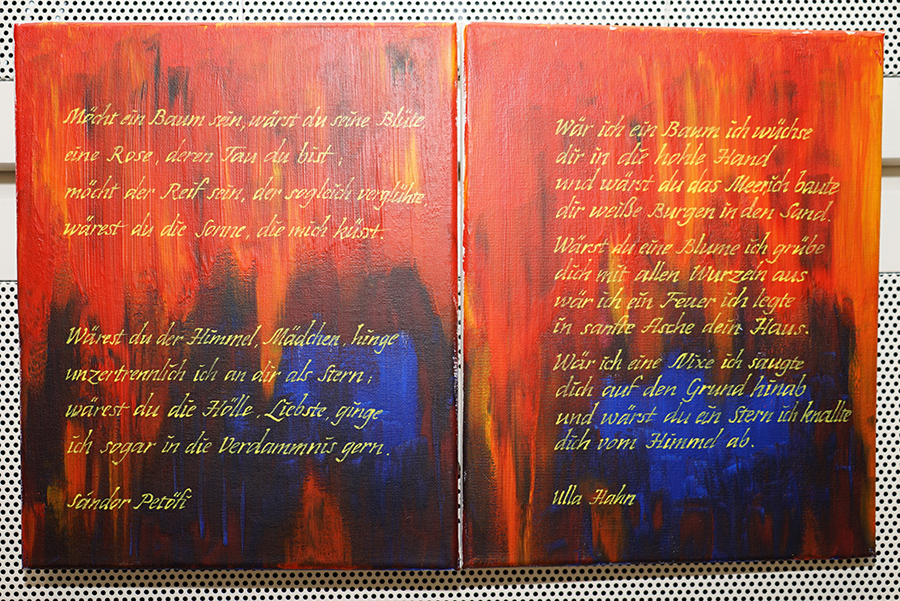 Möcht ein Baum sein, wärst du seine Blüte,
eine Rose, deren Tau du bist;
möcht der Reif sein, der sogleich verglühte,
wärest du die Sonne, die mich küsst.
Wärest du der Himmel, Mädchen, hinge
unzertrennlich ich an dir als Stern;
wärest du die Hölle, Liebste, ginge
ich sogar in die Verdammnis gern.
Sándor Petöfi
Wär ich ein Baum ich wüchse
dir in die hohle Hand
und wärst du das Meer ich baute
dir weiße Burgen in den Sand.
Wärst du eine Blume ich grübe
dich mit allen Wurzeln aus
wär ich ein Feuer ich legte
in sanfte Asche dein Haus.
Wär ich eine Nixe ich saugte
dich auf den Grund hinab
und wärst du ein Stern ich knallte
dich vom Himmel ab.
Ulla Hahn